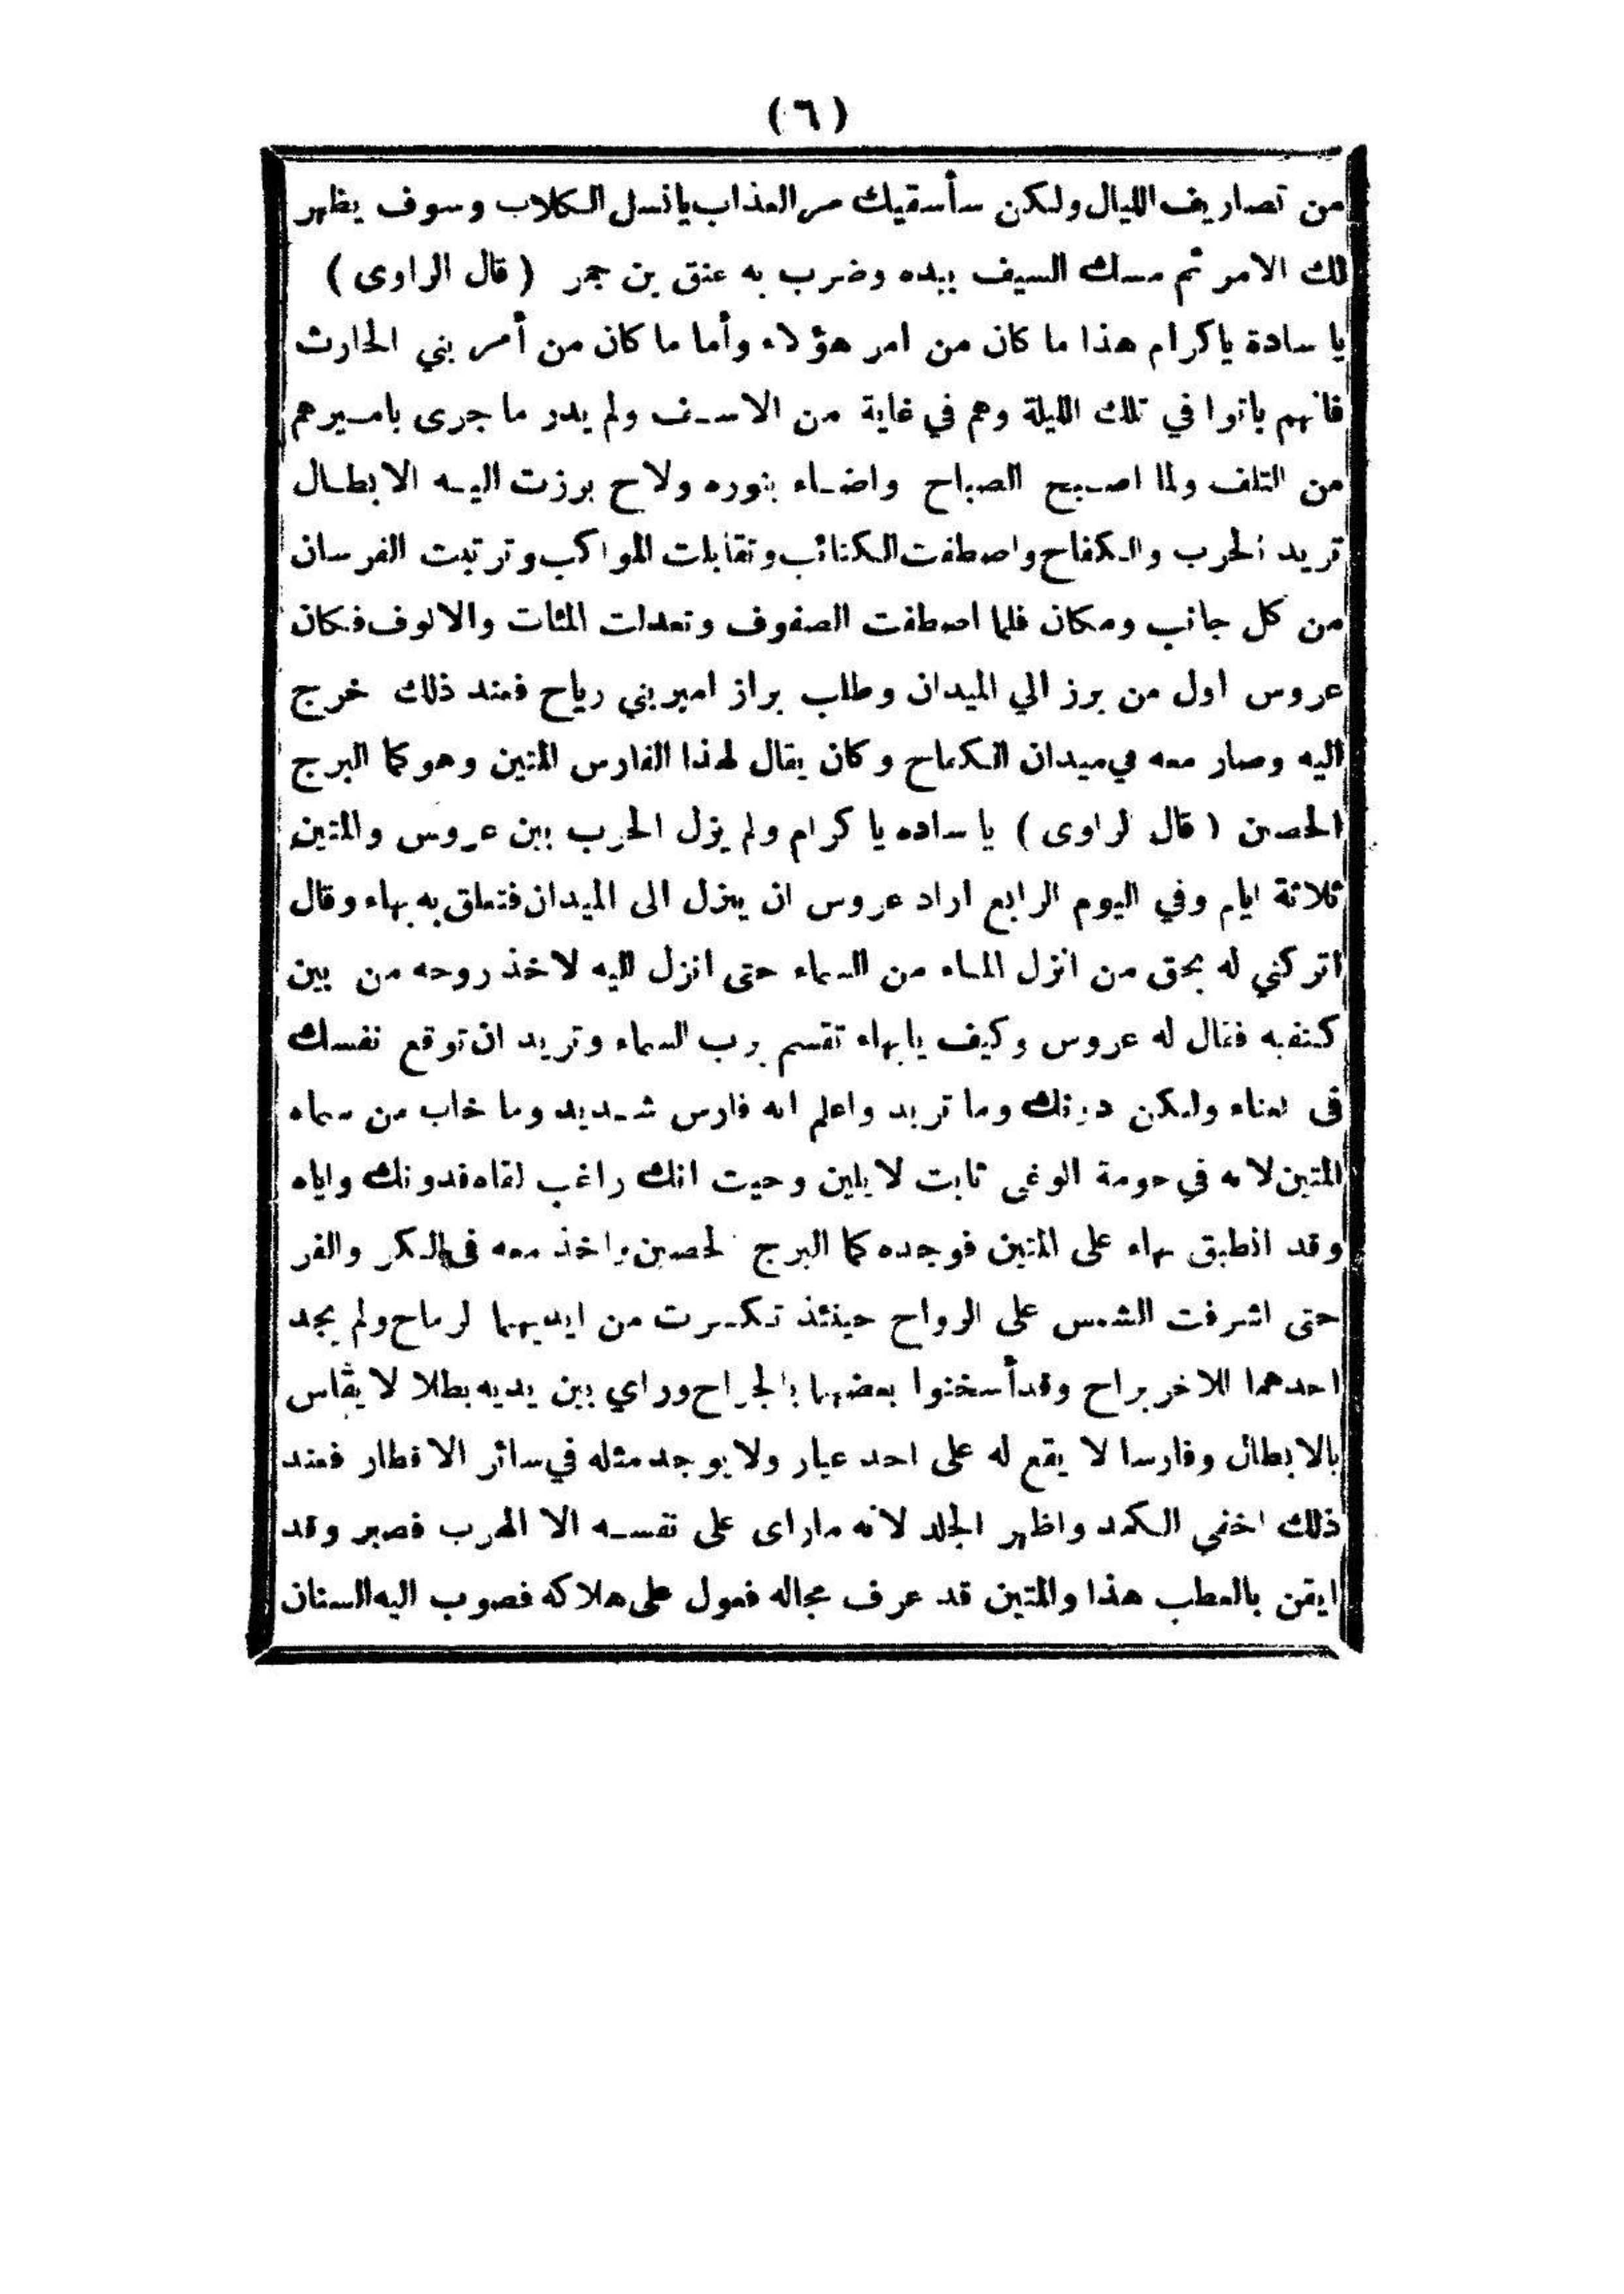 (٦)
من تصاريف الليال ولكن سأسقيك مر العذاب يانسل الكلاب وسوف يظهر
لك الامر ثم مسك السيف بيده وضرب به عنق بن حجر ( قال الراوى )
يا سادة ياكرام هذا ما كان من امر هؤلاء وأما ما كان من أمر بني الحارث
فانهم باتوا في تلك الليلة وهم في غاية من الاسف ولم يدر ما جرى باميرهم
من التلف ولما اصبح الصباح واضاء بنوره ولاح برزت اليه الابطال
تريد الحرب والكفاح واصطفت الكتائب وتقابلت المواكب وترتبت الفرسان
من كل جانب ومكان فلما اصطفت الصفوف وتعدلت المئات والالوف فكان
عروس اول من برز الي الميدان وطلب براز امير بني رياح فعند ذلك خرج
اليه وصار معه في ميدان الكفاح وكان يقال لهذا الفارس المتين وهو كما البرج
الحصين ( قال لراوى ) يا ساده يا كرام ولم يزل الحرب بين عروس والمتين
ثلاثة ايام وفي اليوم الرابع اراد عروس ان ينزل الى الميدان فتعلق به بهاء وقال
اتركني له بحق من انزل الماء من السماء حتى انزل اليه لاخذ روحه من بين
كتفيه فقال له عروس وكيف يابهاء تقسم برب السماء وتريد ان توقع نفسك
فى لعناء ولكن دونك وما تريد واعلم انه فارس شديد وما خاب من سماه
المتين لانه في حومة الوغى ثابت لايلين وحيت انك راغب لقاه فدونك واياه
وقد انطبق بهاء على المتين فوجده كما البرج لحصين واخذ معه فى الكر والفر
حتى اشرفت الشمس على الرواح حينئذ تكسرت من ايديهما لرماح ولم يجد
احدهما للاخر براح وقد أسخنوا بعضهما بالجراح وراي بين يديه بطلا لا يقاس
بالابطال وفارسا لا يقع له على احد عيار ولايوجد مثله في سائر الاقطار فعند
ذلك اخفي الكمد واظهر الجلد لانه ماراى على نفسه الا الهرب فصبر وقد
ايقن بالعطب هذا والمتين قد عرف مجاله فعول على هلاكه فصوب اليه السنان